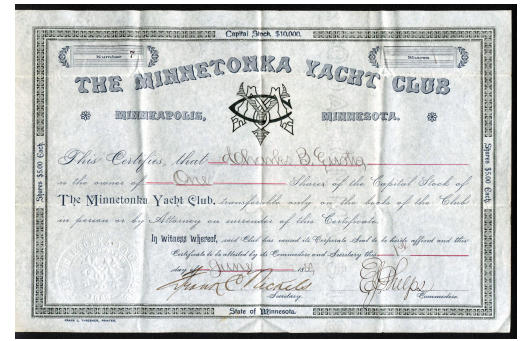 Capital Stock, $10,000.
Number 7 Shares
THE MINNETONKA YACHT CLUB
MINNEAPOLIS, MINNESOTA.
Shares $5.00 Each.
Shares $5.00 Each.
This Certifies, that Charles B.
is the owner of One Shares of the Capital Stock of
The Minnetonka Yacht Club, transferable only on the books of the Club
in person or by Attorney on surrender of this Certificate.
In Witness Whereof, said Club has caused its Corporate Seal to be hereto affixed and this
Certificate to be attested by its Commodore and Secretary this
day of June 18
Secretary. Commodore
State of Minnesota.